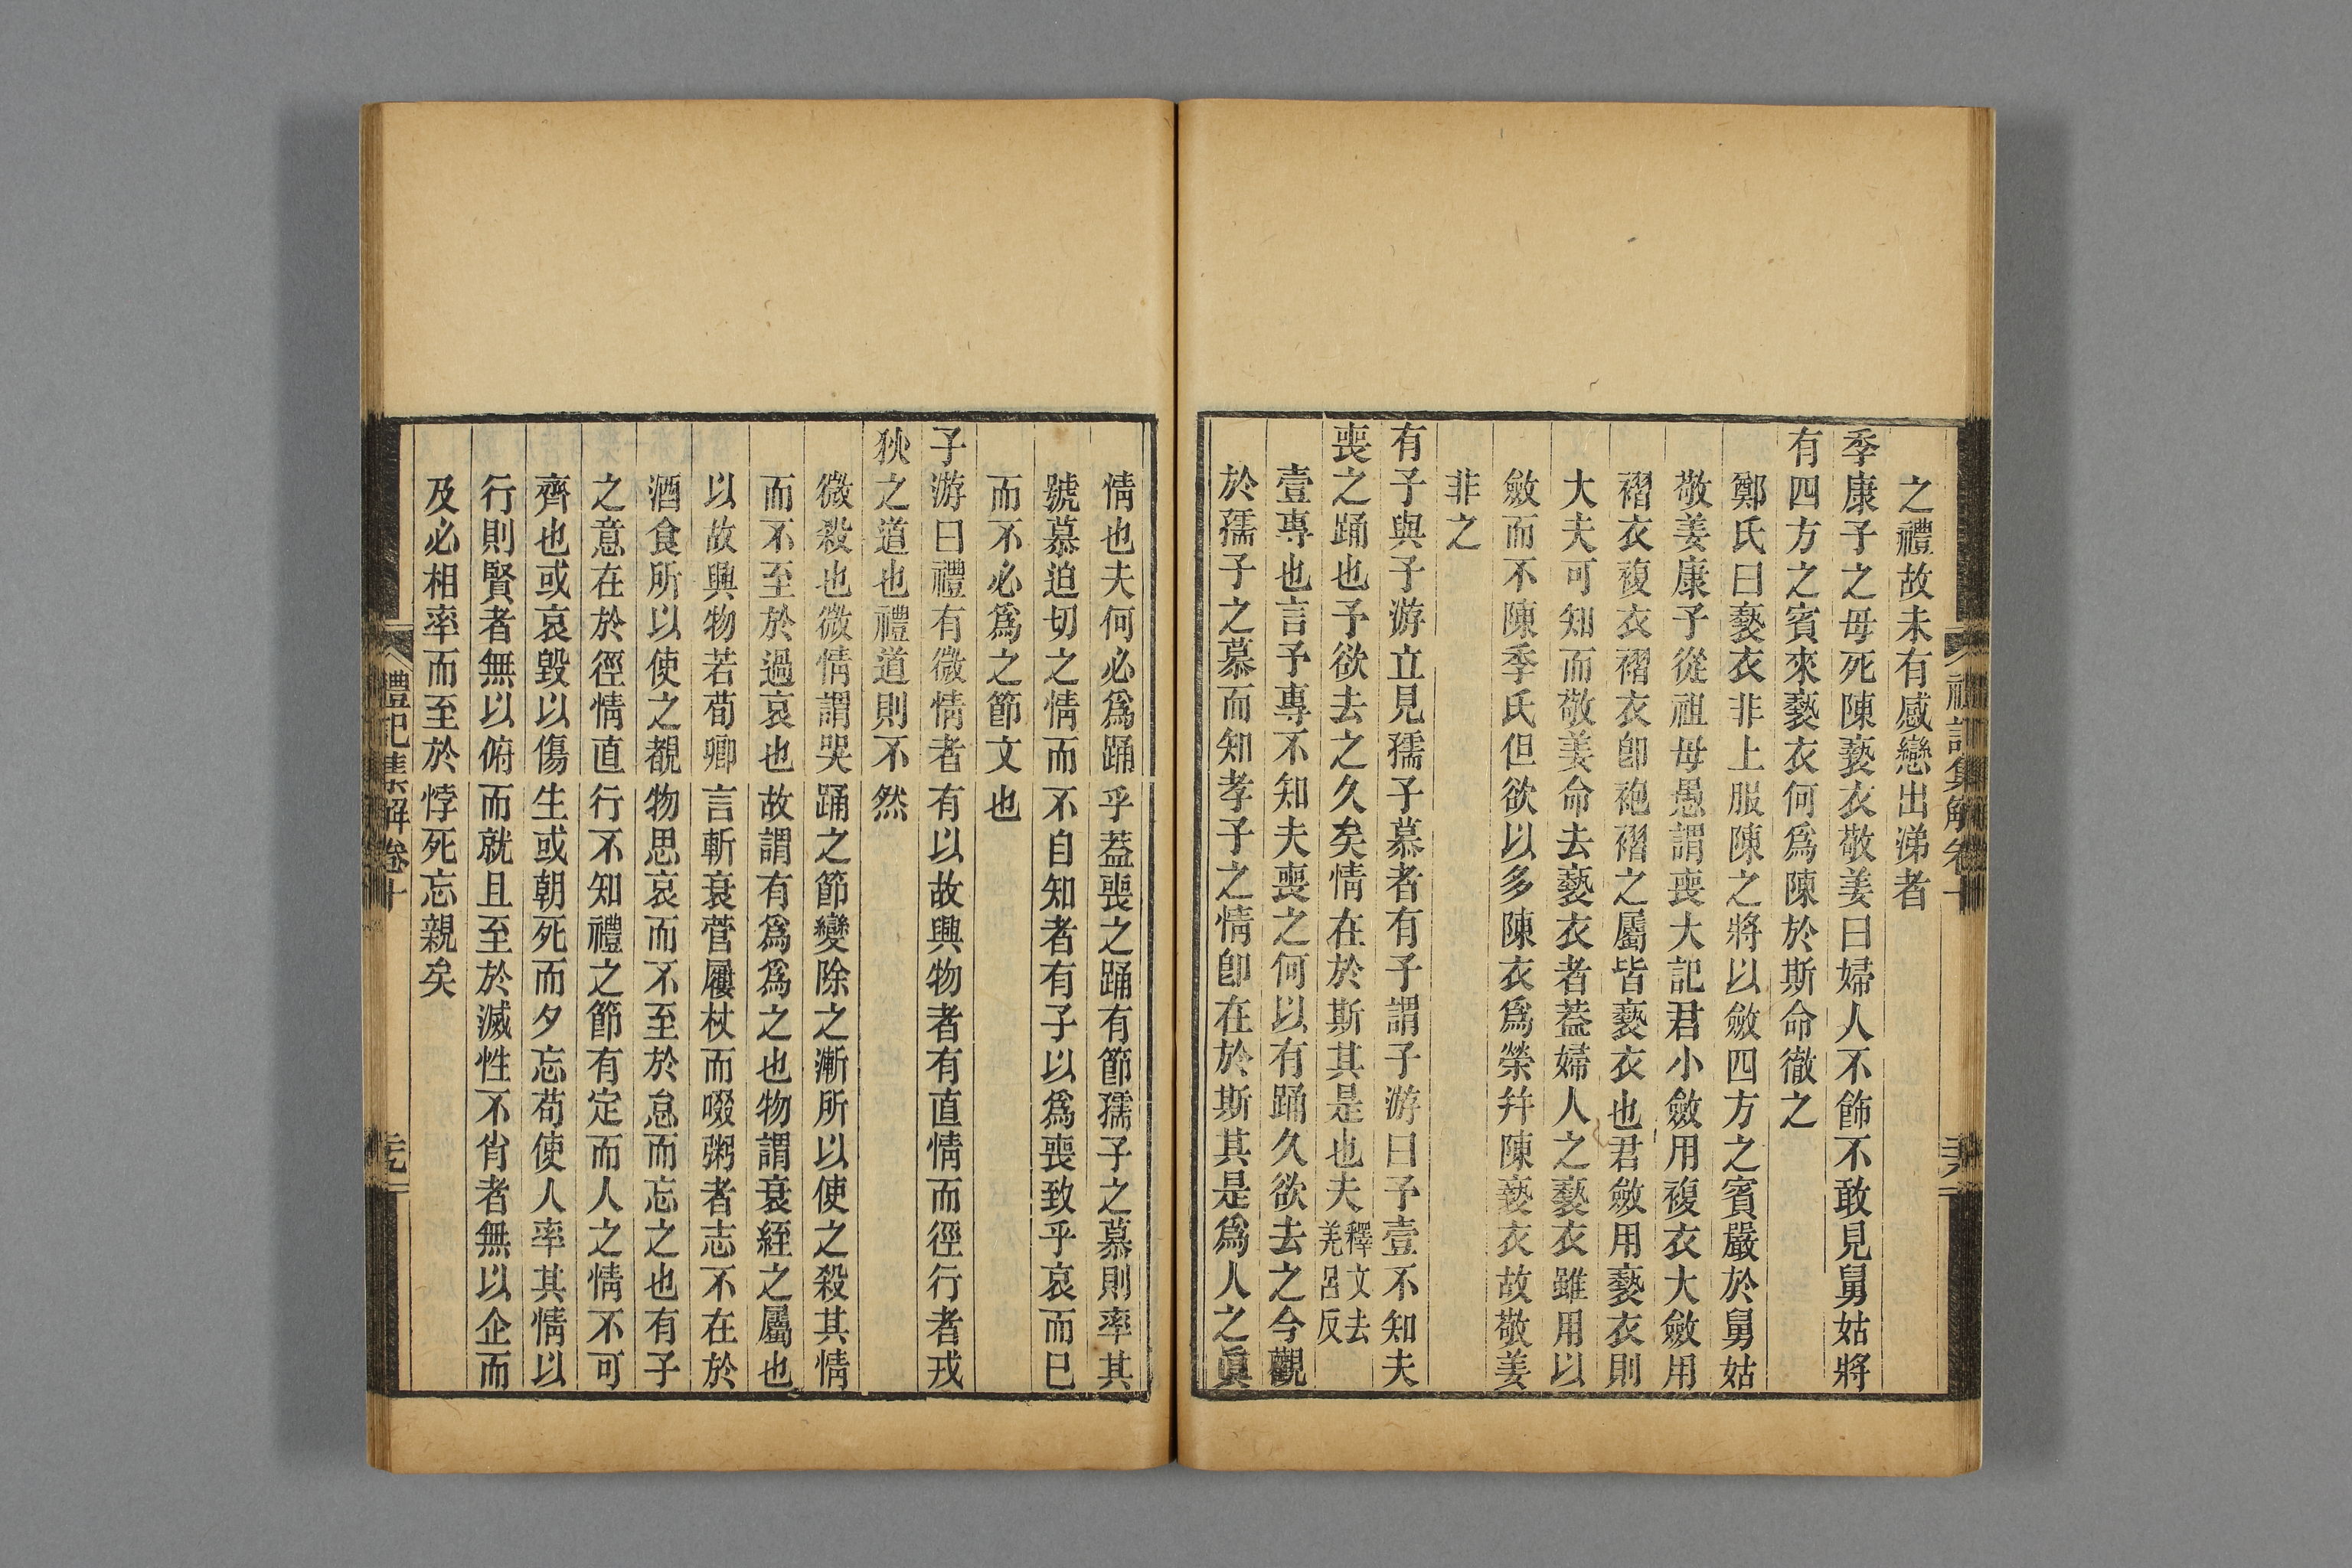 之禮故未有感戀出涕者
季康子之母死陳褻衣敬姜曰婦人不飾不敢見舅姑將
有四方之賓來褻衣何爲陳於斯命徹之
鄭氏曰褻衣非上服陳之將以斂四方之賓嚴於舅姑
敬姜康子從祖母愚謂喪大記君小斂用複衣大斂用
褶衣複衣褶衣卽袍褶之屬皆褻衣也君斂用褻衣則
大夫可知而敬姜命去褻衣者蓋婦人之褻衣雖用以
斂而不陳季氏但欲以多陳衣爲榮幷陳褻衣故敬姜
非之
有子與子游立見孺子慕者有子謂子游曰予壹不知夫
喪之踊也予欲去之久矣情在於斯其是也夫釋文去羌呂反
壹專也言予專不知夫喪之何以有踊久欲去之今觀
於孺子之慕而知孝子之情卽在於斯其是爲人之眞
情也夫何必爲踊乎蓋喪之踊有節孺子之慕則率其
號慕迫切之情而不自知者有子以爲喪致乎哀而已
而不必爲之節文也
子游曰禮有微情者有以故興物者有直情而徑行者戎
狄之道也禮道則不然
微殺也微情謂哭踊之節變除之漸所以使之殺其情
而不至於過哀也故謂有爲爲之也物謂衰絰之屬也
以故興物若荀卿言斬衰菅屨杖而啜粥者志不在於
酒食所以使之覩物思哀而不至於怠而忘之也有子
之意在於徑情直行不知禮之節有定而人之情不可
齊也或哀毀以傷生或朝死而夕忘苟使人率其情以
行則賢者無以俯而就且至於滅性不肖者無以企而
及必相率而至於悖死忘親矣
禮記集解卷十